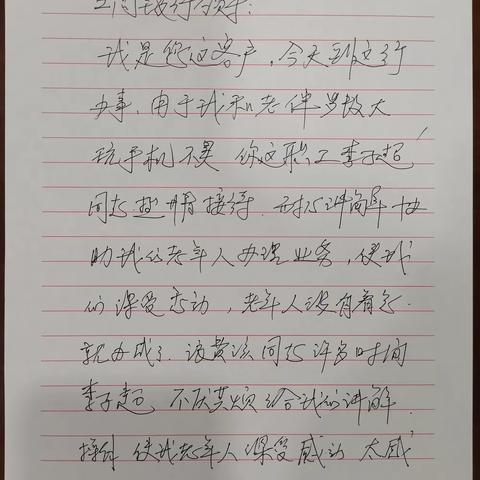 工商银行领导:
我是您这客户,今天到这行
办事,由于我和老伴岁数大
玩手机不灵 你这职工李子超
同志热情接待.耐心讲解 协
助我们老年人办理业务,使我
们深受感动,老年人没有着急.
就办成了.浪费该同志许多时间
李子超 不厌其烦给我们讲解.
操作 使我老年人深受感动 太感